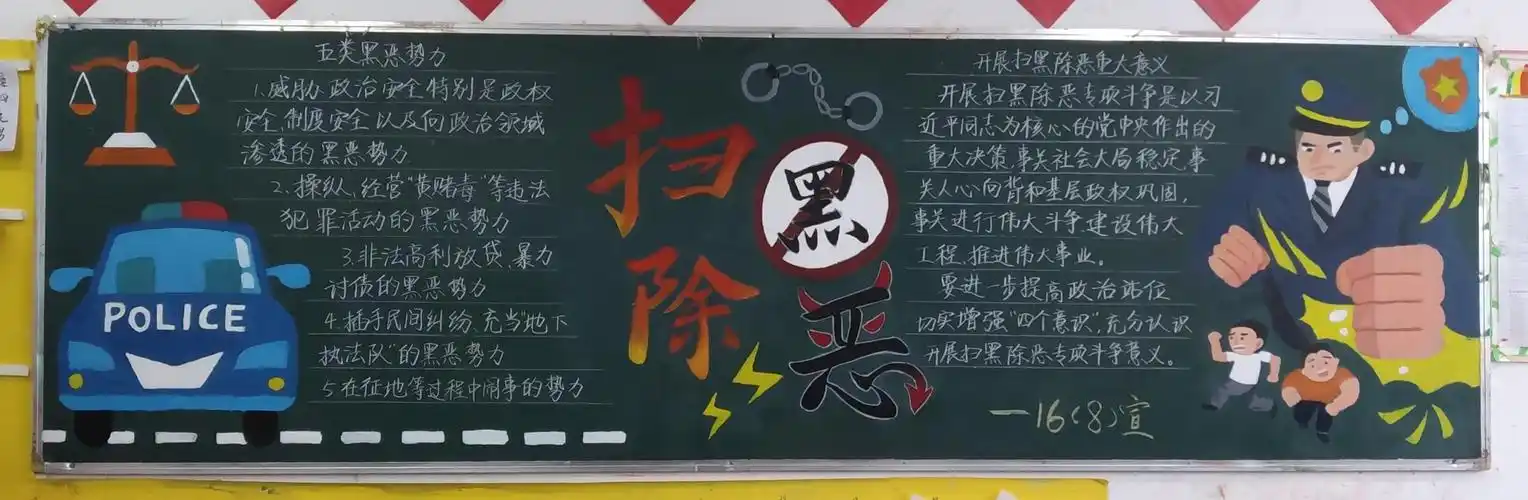 五类黑恶势力
1.威胁政治安全特别是政权
安全、制度安全以及向政治领域
渗透的黑恶势力
2、操纵、经营“黄赌毒”等违法
犯罪活动的黑恶势力
3.非法高利放贷、暴力
讨债的黑恶势力
4.插手民间纠纷,充当“地下
执法队”的黑恶势力
5.在征地等过程中闹事的势力
POLICE
扫
黑
除
恶
开展扫黑除恶重大意义
开展扫黑除恶专项斗争是以习
近平同志为核心的党中央作出的
重大决策,事关社会大局稳定,事
关人心向背和基层政权巩固,
事关进行伟大斗争,建设伟大
工程、推进伟大事业。
要进一步提高政治站位
切实增强“四个意识”,充分认识
开展扫黑除恶专项斗争意义。
一16(8)宣